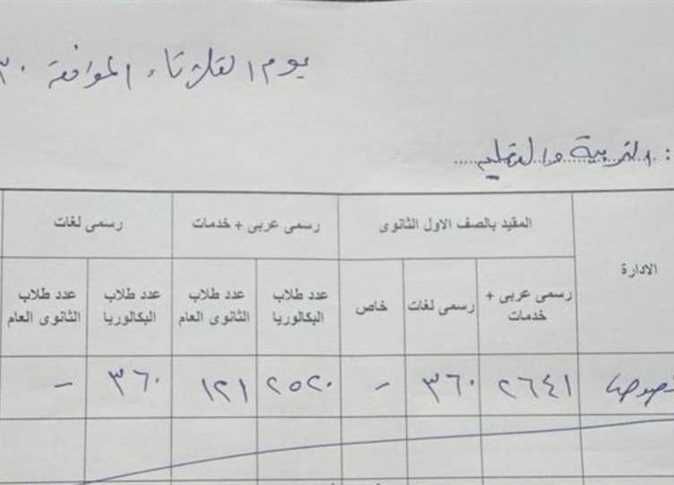 يوم الثلاثاء الموافق ٣٠
: التربية والتعليم
الادارة
المقيد بالصف الاول الثانوى
رسمى عربى + خدمات
رسمى لغات
رسمى عربى + خدمات
رسمى لغات
خاص
عدد طلاب البكالوريا
عدد طلاب الثانوى العام
عدد طلاب البكالوريا
عدد طلاب الثانوى العام
٢٦٤١
٣٦٠
-
٢٥٢٠
١٢١
٣٦٠
-